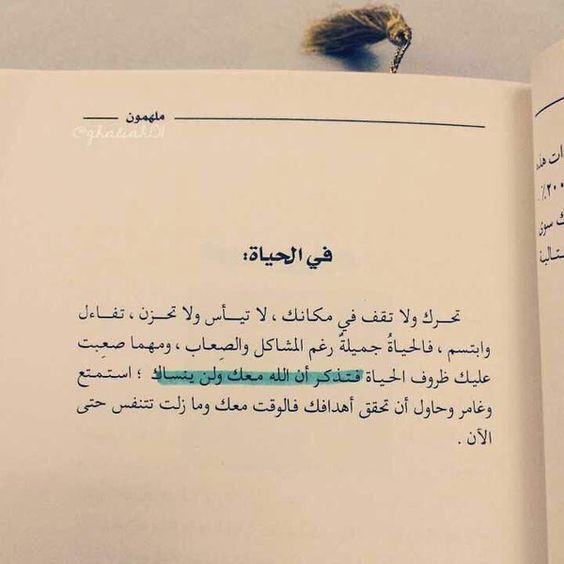 ملهمون
@ghaliah101
في الحياة:
تحرك ولا تقف في مكانك ، لا تيـأس ولا تحـزن ، تفـاءل
وابتسم ، فـالحياةُ جميلةٌ رغم المشاكل والصِعاب ، ومهما صعِبت
عليك ظروف الحيـاة فـتـذكـر أن الله مـعـك ولن ينسـاك ؛ استمتع
وغامر وحاول أن تحقق أهدافك فالوقت معك وما زلت تتنفس حتى
الآن .
ات هذه
٢٠٠٪.
ك سوى
ـتـالية